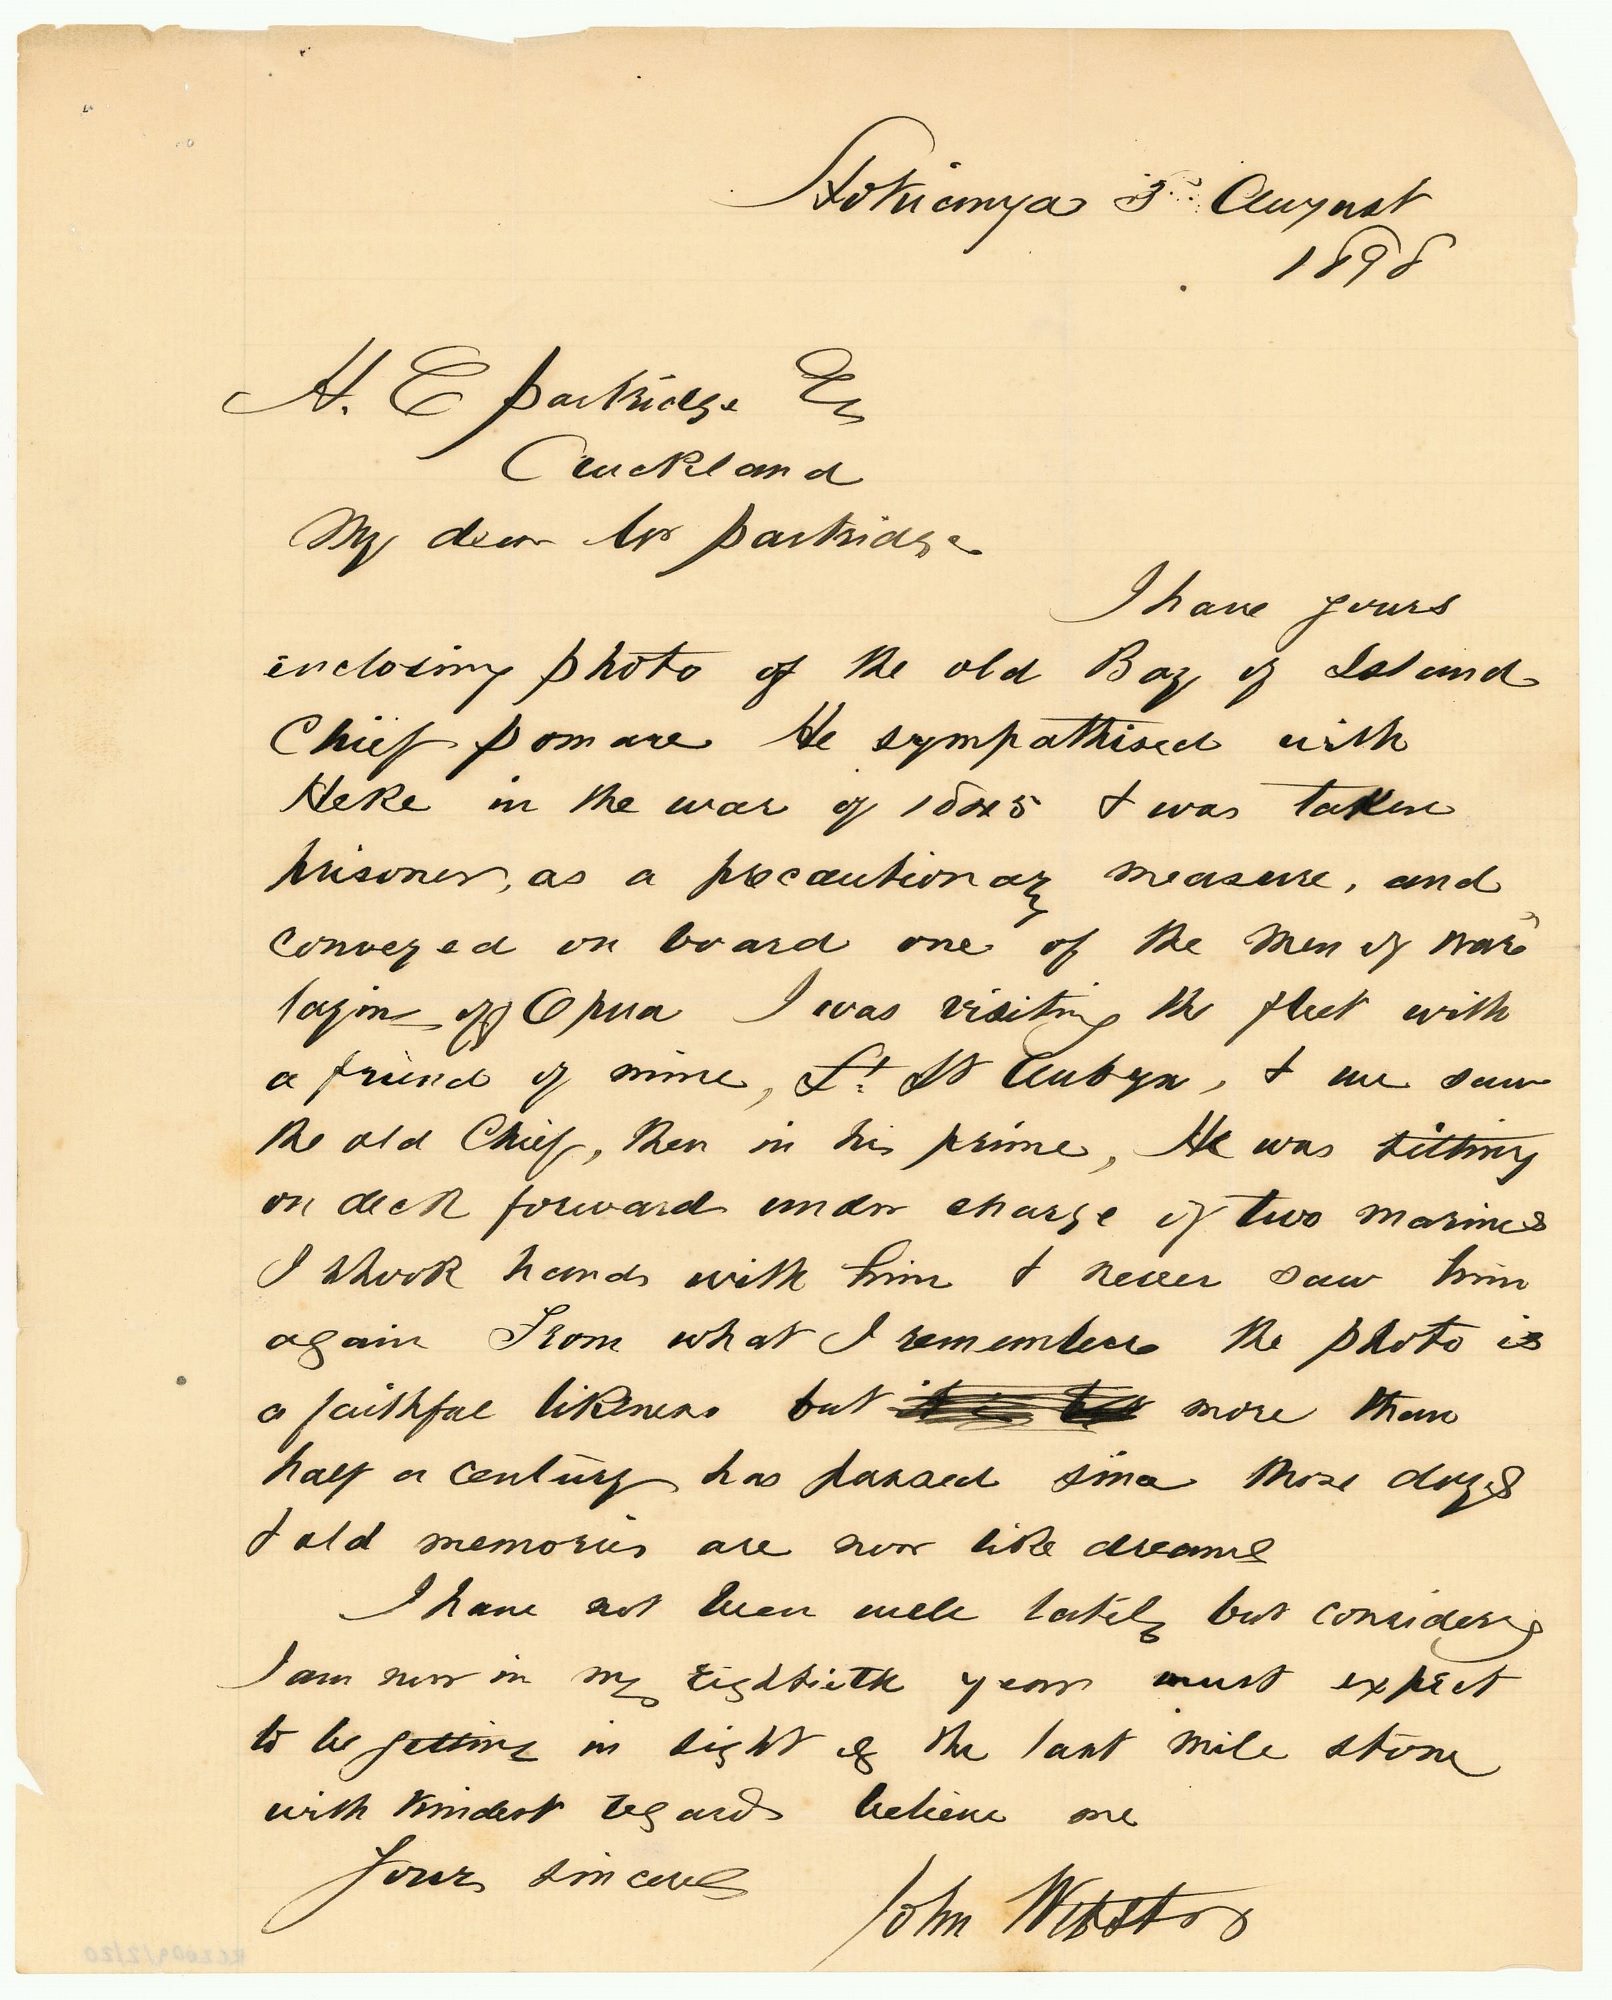 Hokianga 5th August
1898
H. E Partridge Esq
Auckland
My dear Mr Partridge
I have yours
enclosing photo of the old Bay of Island
Chief Pomare He sympathised with
Heke in the war of 1845 & was taken
prisoner, as a precautionary measure, and
conveyed on board one of the Men of War
laying off Opua I was visiting the fleet with
a friend of mine, Lt. St Aubyn, & we saw
the old Chief, then in his prime, He was sitting
on deck forward under charge of two marines
I shook hands with him & never saw him
again From what I remember the photo is
a faithful likeness but more than
half a century has passed since those days
& old memories are now like dreams
I have not been well lately but considering
I am now in my eightieth year must expect
to be getting in sight of the last mile stone
with kindest regards believe me
Yours sincerely
John Webster